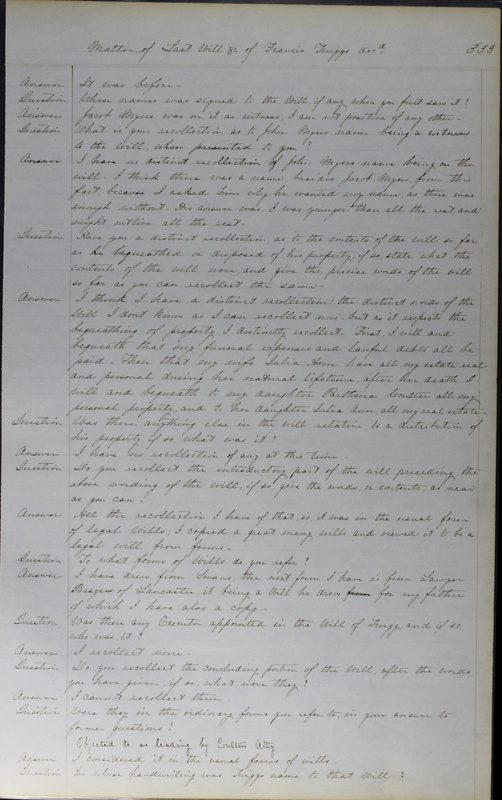 Matter of Last Will &c of Francis Trigg decd. 333
Answer It was before -
Question Whose names was signed to the Will if any when you first saw it?
Answer Jacob Myers was on it as witness, I am not positive of any other -
Question What is your recollection as to John Myers name being a witness
to the Will, when presented to you?
Answer I have no distinct recollection of John Myers name being on the
will - I think there was a name besides Jacob Myers, from this
fact, because I asked him why he wanted my name, as there was
enough without. His answer was, I was younger than all the rest and
might outlive all the rest -
Question Have you a distinct recollection as to the contents of the will so far
as he bequeathed or disposed of his property, if so, state what the
contents of the will were, and give the precise words of the will
so far as you can recollect the same -
Answer I think I have a distinct recollection: the distinct words of the
Will I dont know as I can recollect now - but as it respects the
bequeathing of property I distinctly recollect. First, I will and
bequeath that my funeral expenses and lawful debts all be
paid - Then that my wife Julia Ann have all my estate real
and personal during her natural lifetime, after her death I
will and bequeath to my daughter Parthena Coulter all my
personal property, and to her daughter Julia Ann all my real estate -
Question Was there anything else in the will relative to a distribution of
his property, if so, what was it?
Answer I have no recollection of any at this time -
Question Do you recollect the introductory part of the will preceding the
above wording of the will, if so give the words, or contents, as near
as you can -
Answer All the recollection I have of that, is, it was in the usual form
of legal Wills, I copied a great many wills and viewed it to be a
legal will from forms -
Question To what forms of Wills do you refer?
Answer I have drew from Swans, the next form I have is from Lawyer
of Lancaster it being a Will he drew from for my father
of which I have also a copy -
Question Was there any Executor appointed in the Will of Trigg, and if so,
who was it?
Answer I recollect none -
Question Do you recollect the concluding portion of the Will, after the words
you have given, if so, what were they?
Answer I cannot recollect them -
Question Were they in the ordinary forms you refer to, in your answer to
former questions?
Objected to as leading by Coulters Atty
Answer I considered it in the usual forms of wills -
Question In whose handwriting was Triggs name to that Will?